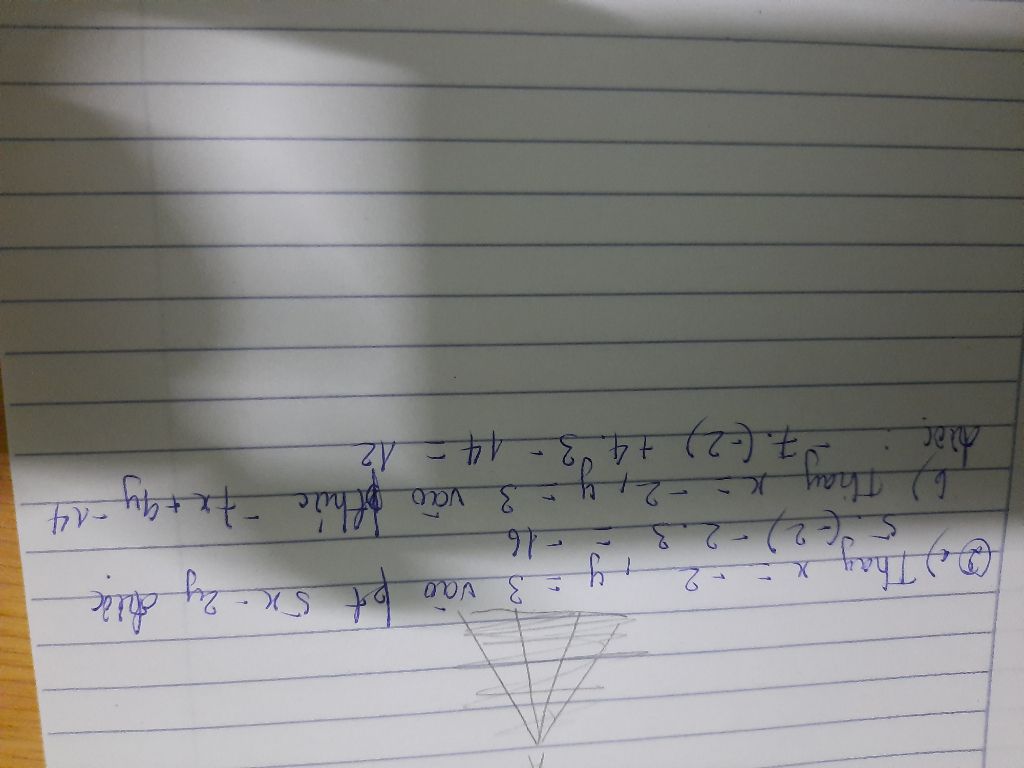 ② a) Thay x = -2, y = 3 vào pt 5x - 2y được:
5.(-2) - 2.3 = -16
b) Thay x = -2, y = 3 vào thức -7x + 4y - 14
được: -7.(-2) + 4.3 - 14 = 12